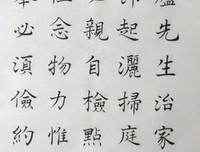 廬先生治家
起灑掃庭
親自檢點
念物力惟
奉必湏儉約